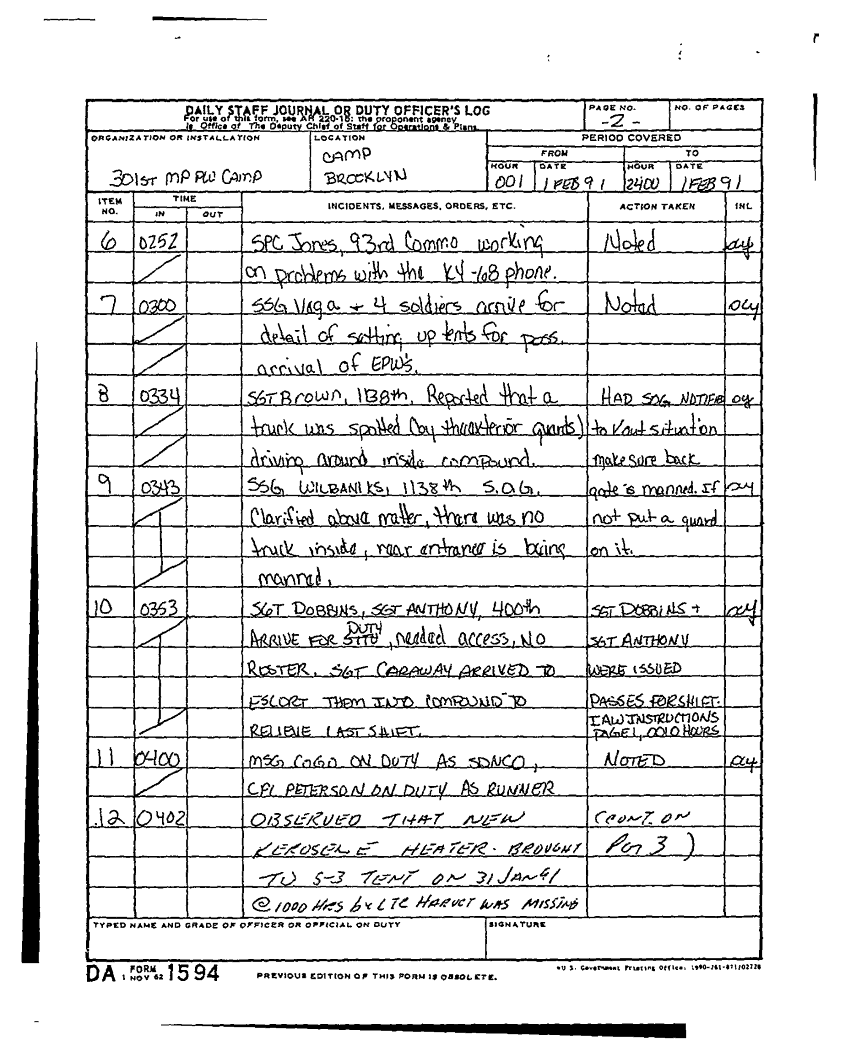 DAILY STAFF JOURNAL OR DUTY OFFICER'S LOG
For use of this form, see AR 220-15; the proponent agency
is Office of The Deputy Chief of Staff for Operations & Plans.
PAGE NO.
-2-
NO. OF PAGES
ORGANIZATION OR INSTALLATION
301ST MP PW CAMP
LOCATION
CAMP
BROOKLYN
PERIOD COVERED
FROM TO
HOUR DATE HOUR DATE
001 1 FEB 91 2400 1 FEB 91
ITEM NO. TIME INCIDENTS, MESSAGES, ORDERS, ETC. ACTION TAKEN INL
IN OUT
6 0252 SPC Jones, 93rd Commo working Noted
on problems with the KY-68 phone.
7 0300 SSG Vega + 4 soldiers arrive for Noted
detail of setting up tents for poss.
arrival of EPW's.
8 0334 SGT Brown, 1138th, Reported that a HAD SOG NOTIFIED
truck was spotted (by the exterior guards) to situation
driving around inside compound. make sure back
9 0343 SSG WILBANIKS, 1138th S.O.G. gate is manned. If
Clarified above matter, there was no not put a guard
truck inside, rear entrance is being on it.
manned.
10 0353 SGT DOBBINS, SGT ANTHONY, 400th SGT DOBBINS +
ARRIVE FOR DUTY, needed access, NO SGT ANTHONY
ROSTER. SGT CARAWAY ARRIVED TO WERE ISSUED
ESCORT THEM INTO COMPOUND TO PASSES FOR SHIFT.
RELIEVE LAST SHIFT. IAW INSTRUCTIONS
PAGE 1, 0010 HOURS
11 0400 MSG COGO ON DUTY AS SDNCO, NOTED
CPL PETERSON ON DUTY AS RUNNER
12 0402 OBSERVED THAT NEW (CONT. ON
KEROSENE HEATER BROUGHT Pg 3)
TO S-3 TENT ON 31 JAN 91
@ 1000 HRS by LTC HARVEY WAS MISSING
TYPED NAME AND GRADE OF OFFICER OR OFFICIAL ON DUTY SIGNATURE
DA FORM 1594
1 NOV 62
PREVIOUS EDITION OF THIS FORM IS OBSOLETE.
U.S. Government Printing Office: 1990-261-871/02728